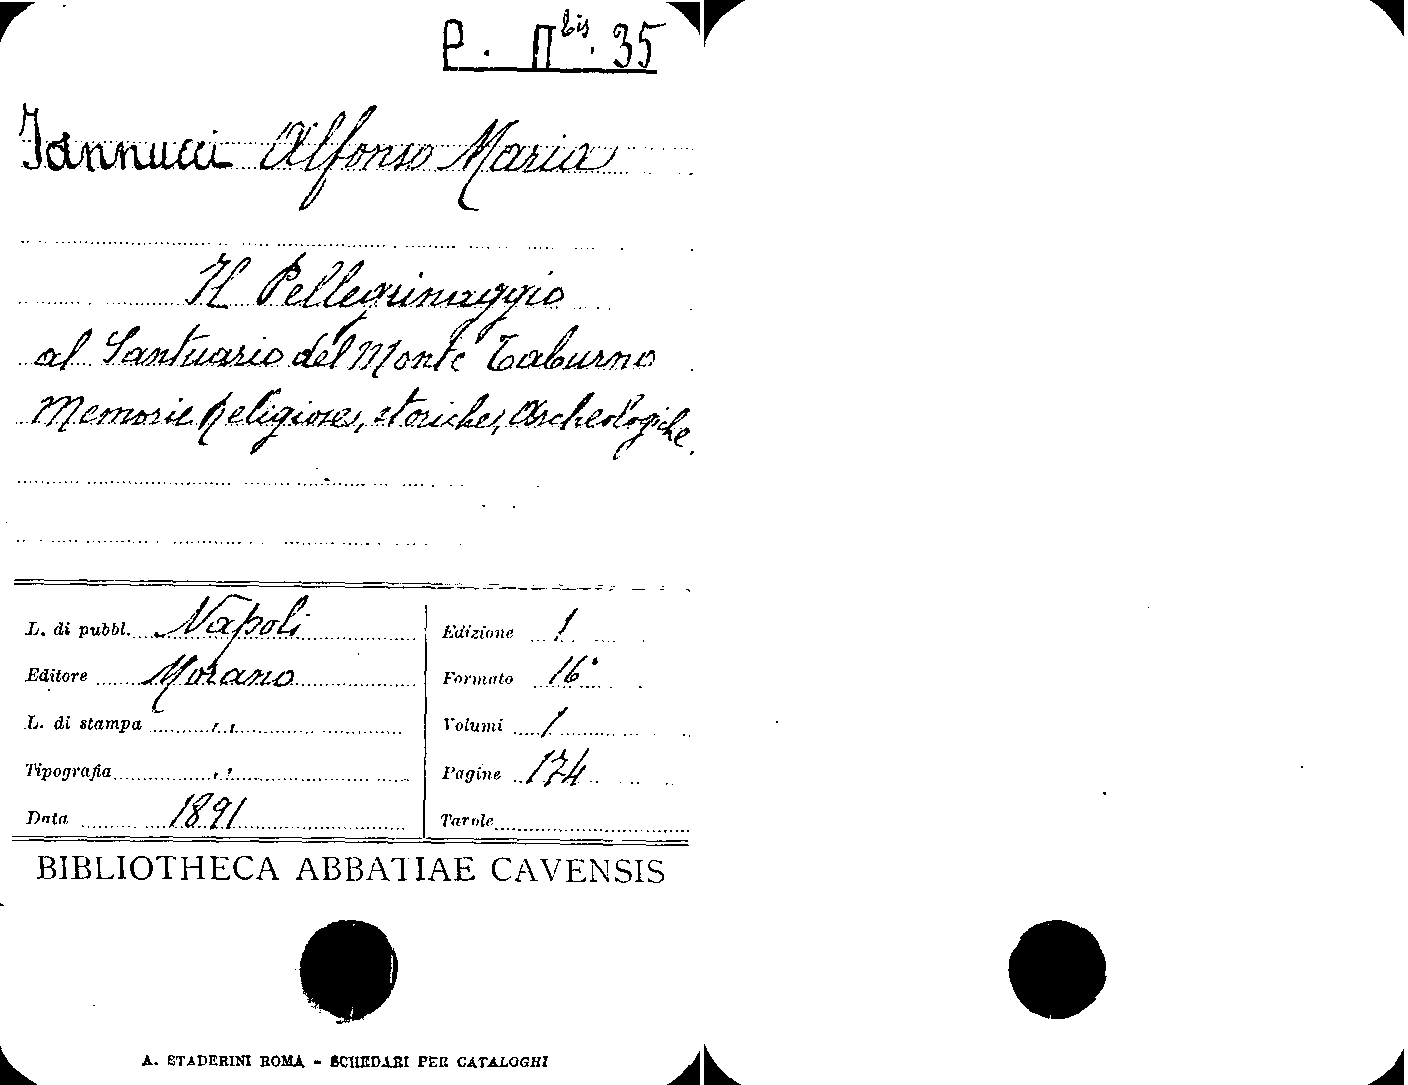 P. II bis. 35
Iannucci Alfonso Maria
Il Pellegrinaggio
al Santuario del Monte Taburno
Memorie Religiose, storiche, Archeologiche.
L. di pubbl. Napoli
Editore Morano
L. di stampa ,,
Tipografia ,,
Data 1891
Edizione 1
Formato 16°
Volumi 1
Pagine 174
Tavole
BIBLIOTHECA ABBATIAE CAVENSIS
A. STADERINI ROMA - SCHEDARI PER CATALOGHI